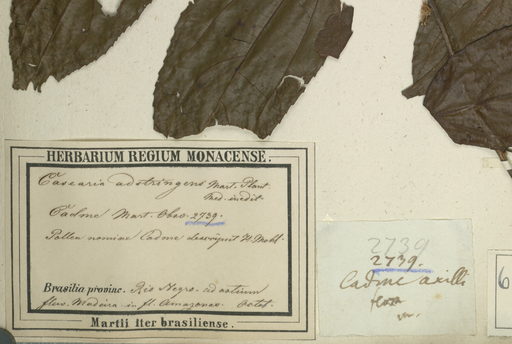 HERBARIUM REGIUM MONACENSE.
Casearia adstringens Mart. Plant
Med. inedit.
Cadme Mart. Obs. 2739.
Pollen nomine Cadme descripsit H. Mohl.
Brasilia provinc. Rio Negro - ad ostium
fluv. Madeira in fl. Amazonum. Octob.
Martii Iter brasiliense.
2739
2739.
Cadme axilli
flora
6